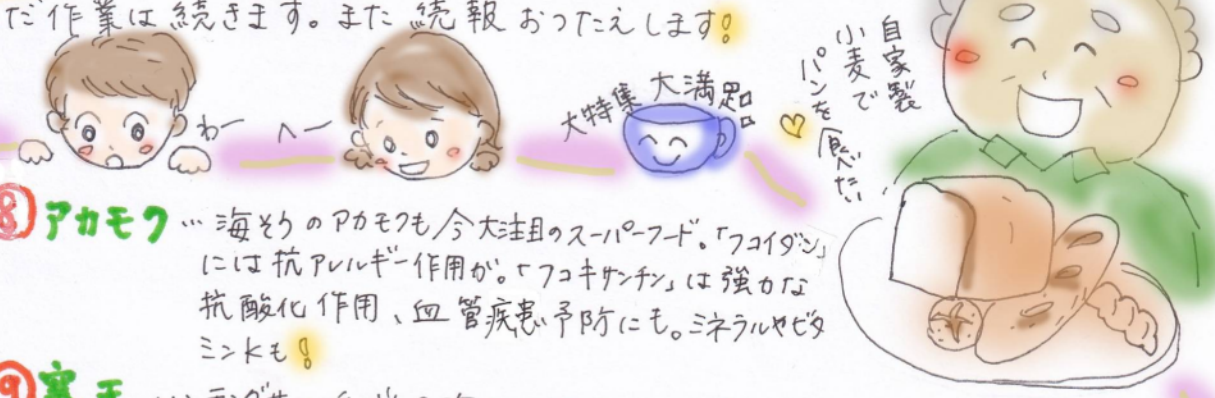 だ作業は続きます。また続報おつたえします!
わー
へー
大特集大満足!
自家製
小麦で
パンを
食べたい
⑧アカモク…海そうのアカモクも今大注目のスーパーフード。「フコイダン」
には抗アレルギー作用が。「フコキサンチン」は強力な
抗酸化作用、血管疾患予防にも。ミネラルやビタ
ミンKも!
⑨寒天